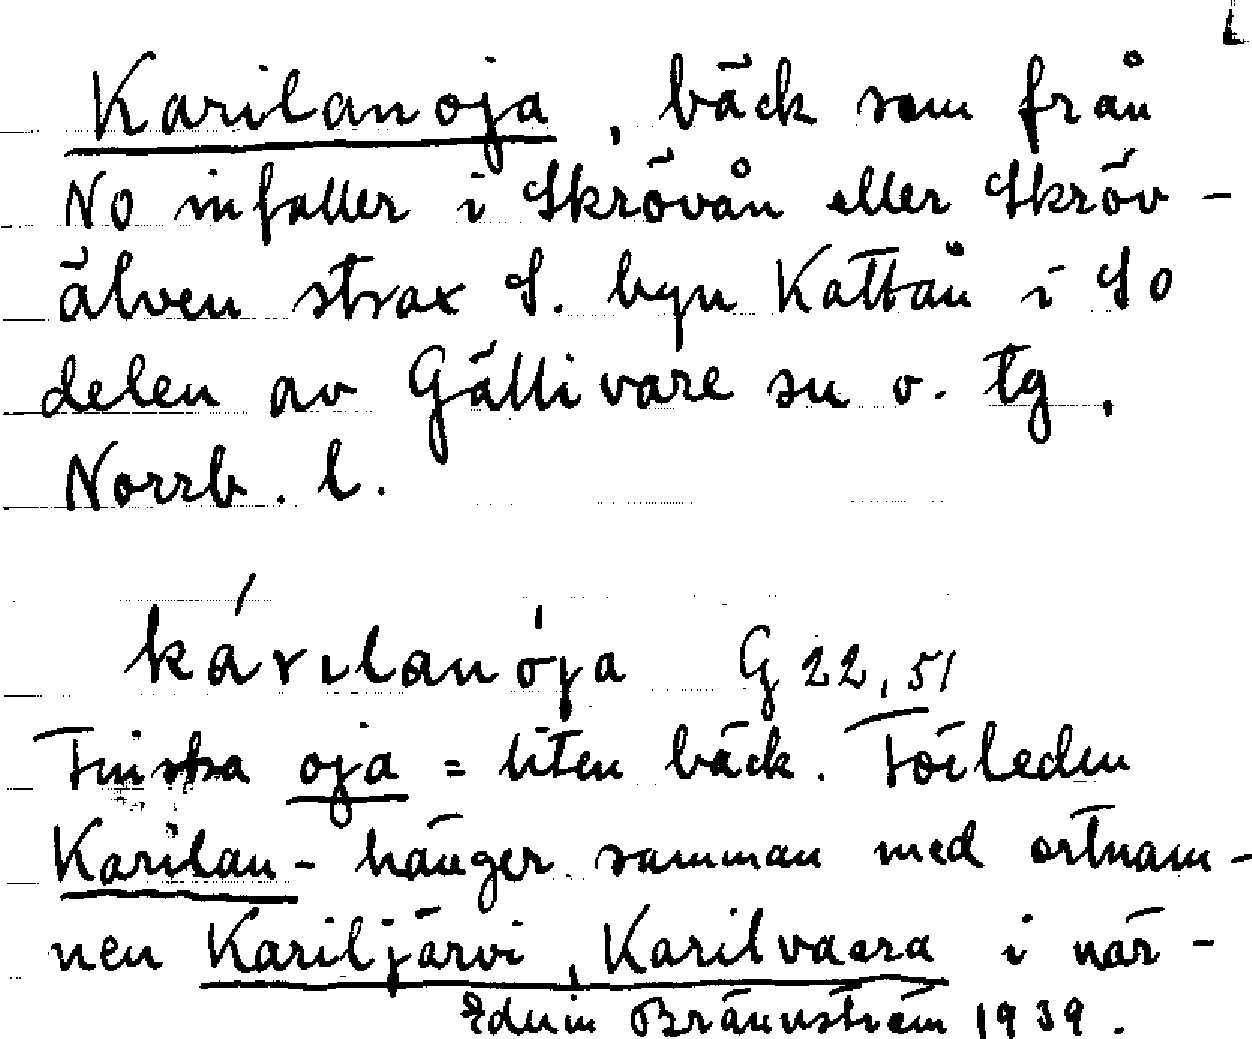 Karilanoja, bäck som från
No infaller i Skrövån eller Skröv-
älven strax S. byn Kattån i So
delen av Gällivare sn o. tg,
Norrb. l.
kárılanója G 22,51
Finska oja = liten bäck. Förleden
Karilan- hänger samman med ortnam-
nen Kariljärvi, Karilvaara i när-
Edvin Brännström 1939.